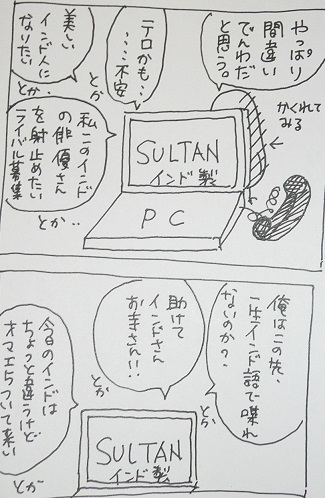 やっぱり
間違い
でんわだ
と思う。
とか
テロかも‥
‥‥不安
とか
美しい
インド人に
なりたい
とか.
私このインド
の俳優さん
を射止めたい
ライバル募集
とか‥
かくれて
みる
SULTAN
インド製
PC
俺はこの先、
一生インド語で喋れ
ないのか?
とか
助けて
インドさん
お寺さん!!
とか
今日のインドは
ちょっと違うけど
オマエらついて来い
とか
SULTAN
インド製